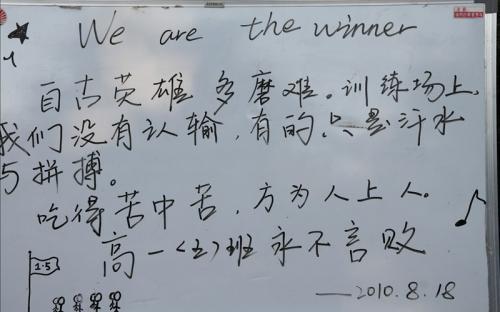 We are the winner
自古英雄多磨难。训练场上,
我们没有认输,有的只是汗水
与拼搏。
吃得苦中苦,方为人上人。
高一<五>班永不言败
1.5
——2010.8.18